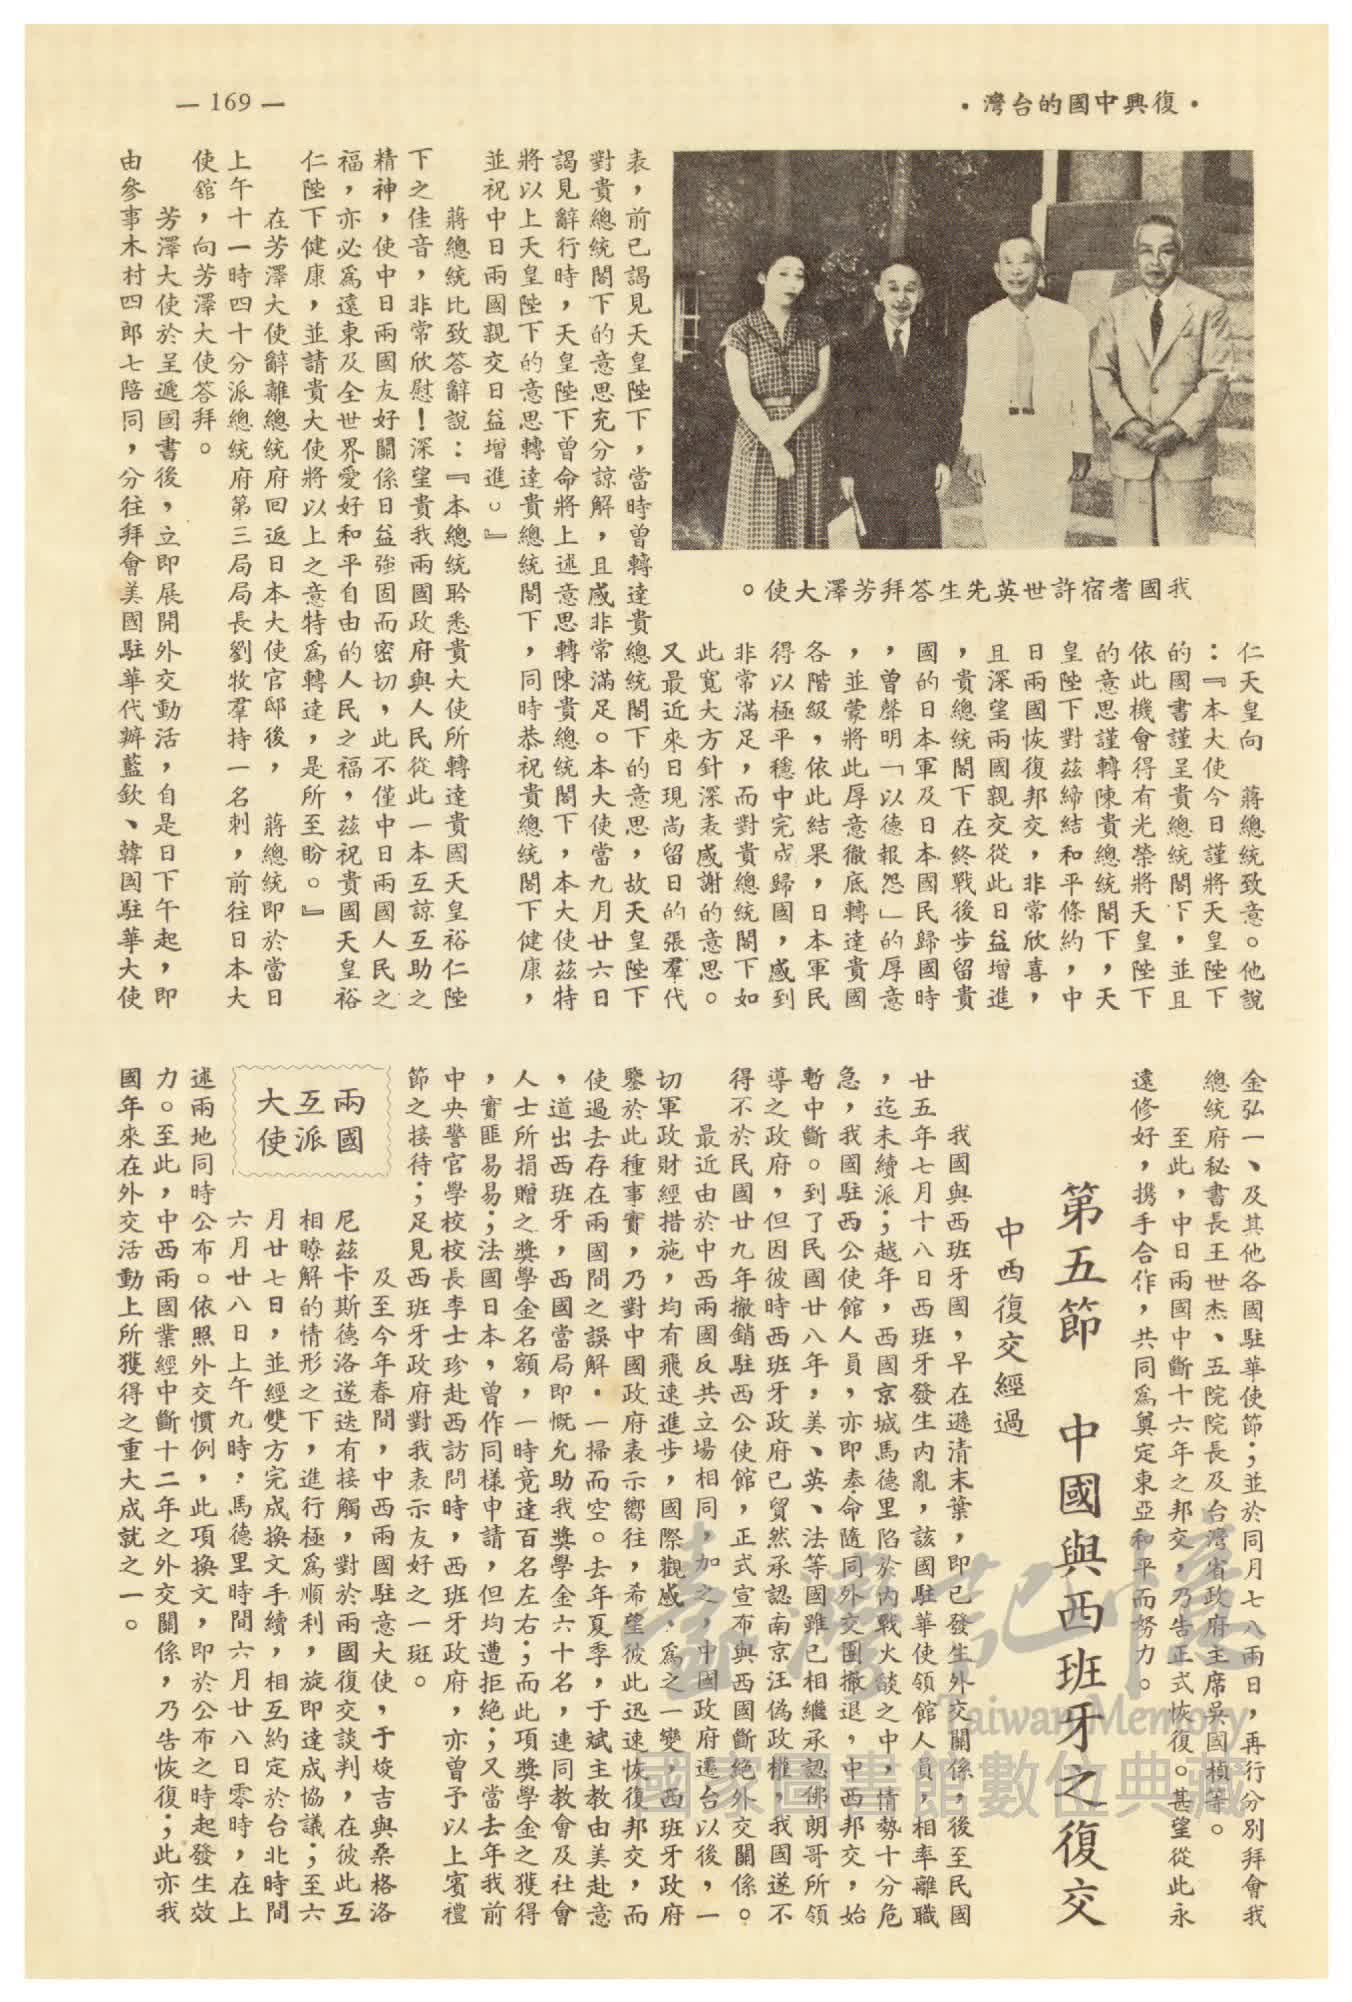 ・復興中國的台灣・
— 169 —
我國耆宿許世英先生答拜芳澤大使。
仁天皇向　蔣總統致意。他說
：『本大使今日謹將天皇陛下
的國書謹呈貴總統閣下，並且
依此機會得有光榮將天皇陛下
的意思謹轉陳貴總統閣下，天
皇陛下對茲締結和平條約，中
日兩國恢復邦交，非常欣喜，
且深望兩國親交從此日益增進
，貴總統閣下在終戰後步留貴
國的日本軍及日本國民歸國時
，曾聲明「以德報怨」的厚意
，並蒙將此厚意徹底轉達貴國
各階級，依此結果，日本軍民
得以極平穩中完成歸國，感到
非常滿足，而對貴總統閣下如
此寬大方針深表感謝的意思。
又最近來日現尚留日的張羣代
表，前已謁見天皇陛下，當時曾轉達貴總統閣下的意思，故天皇陛下
對貴總統閣下的意思充分諒解，且感非常滿足。本大使當九月廿六日
謁見辭行時，天皇陛下曾命將上述意思轉陳貴總統閣下，本大使茲特
將以上天皇陛下的意思轉達貴總統閣下，同時恭祝貴總統閣下健康，
並祝中日兩國親交日益增進。』
蔣總統比致答辭說：『本總統聆悉貴大使所轉達貴國天皇裕仁陛
下之佳音，非常欣慰！深望貴我兩國政府與人民從此一本互諒互助之
精神，使中日兩國友好關係日益強固而密切，此不僅中日兩國人民之
福，亦必爲遠東及全世界愛好和平自由的人民之福，茲祝貴國天皇裕
仁陛下健康，並請貴大使將以上之意特爲轉達，是所至盼。』
在芳澤大使辭離總統府回返日本大使官邸後，　蔣總統即於當日
上午十一時四十分派總統府第三局局長劉牧羣持一名刺，前往日本大
使舘，向芳澤大使答拜。
芳澤大使於呈遞國書後，立即展開外交動活，自是日下午起，即
由參事木村四郎七陪同，分往拜會美國駐華代辦藍欽、韓國駐華大使
金弘一、及其他各國駐華使節；並於同月七八兩日，再行分別拜會我
總統府秘書長王世杰、五院院長及台灣省政府主席吳國楨等。
至此，中日兩國中斷十六年之邦交，乃告正式恢復。甚望從此永
遠修好，携手合作，共同爲奠定東亞和平而努力。
第五節　中國與西班牙之復交
中西復交經過
我國與西班牙國，早在遜清末葉，即已發生外交關係，後至民國
廿五年七月十八日西班牙發生內亂，該國駐華使領館人員，相率離職
，迄未續派；越年，西國京城馬德里陷於內戰火談之中，情勢十分危
急，我國駐西公使館人員，亦即奉命隨同外交團撤退，中西邦交，始
暫中斷。到了民國廿八年，美、英、法等國雖已相繼承認佛朗哥所領
導之政府，但因彼時西班牙政府已貿然承認南京汪偽政權，我國遂不
得不於民國廿九年撤銷駐西公使館，正式宣布與西國斷絕外交關係。
最近由於中西兩國反共立場相同，加之，中國政府遷台以後，一
切軍政財經措施，均有飛速進步，國際觀感，爲之一變，西班牙政府
鑒於此種事實，乃對中國政府表示嚮往，希望彼此迅速恢復邦交，而
使過去存在兩國間之誤解，一掃而空。去年夏季，于斌主教由美赴意
，道出西班牙，西國當局即慨允助我獎學金六十名，連同教會及社會
人士所捐贈之獎學金名額，一時竟達百名左右；而此項獎學金之獲得
，實匪易易；法國日本，曾作同樣申請，但均遭拒絕；又當去年我前
中央警官學校校長李士珍赴西訪問時，西班牙政府，亦曾予以上賓禮
節之接待；足見西班牙政府對我表示友好之一斑。
兩國
互派
大使
及至今年春間，中西兩國駐意大使，于焌吉與桑格洛
尼茲卡斯德洛遂迭有接觸，對於兩國復交談判，在彼此互
相瞭解的情形之下，進行極爲順利，旋即達成協議；至六
月廿七日，並經雙方完成換文手續，相互約定於台北時間
六月廿八日上午九時，馬德里時間六月廿八日零時，在上
述兩地同時公布。依照外交慣例，此項換文，即於公布之時起發生效
力。至此，中西兩國業經中斷十二年之外交關係，乃告恢復；此亦我
國年來在外交活動上所獲得之重大成就之一。
臺灣記憶
Taiwan Memory
國家圖書館數位典藏